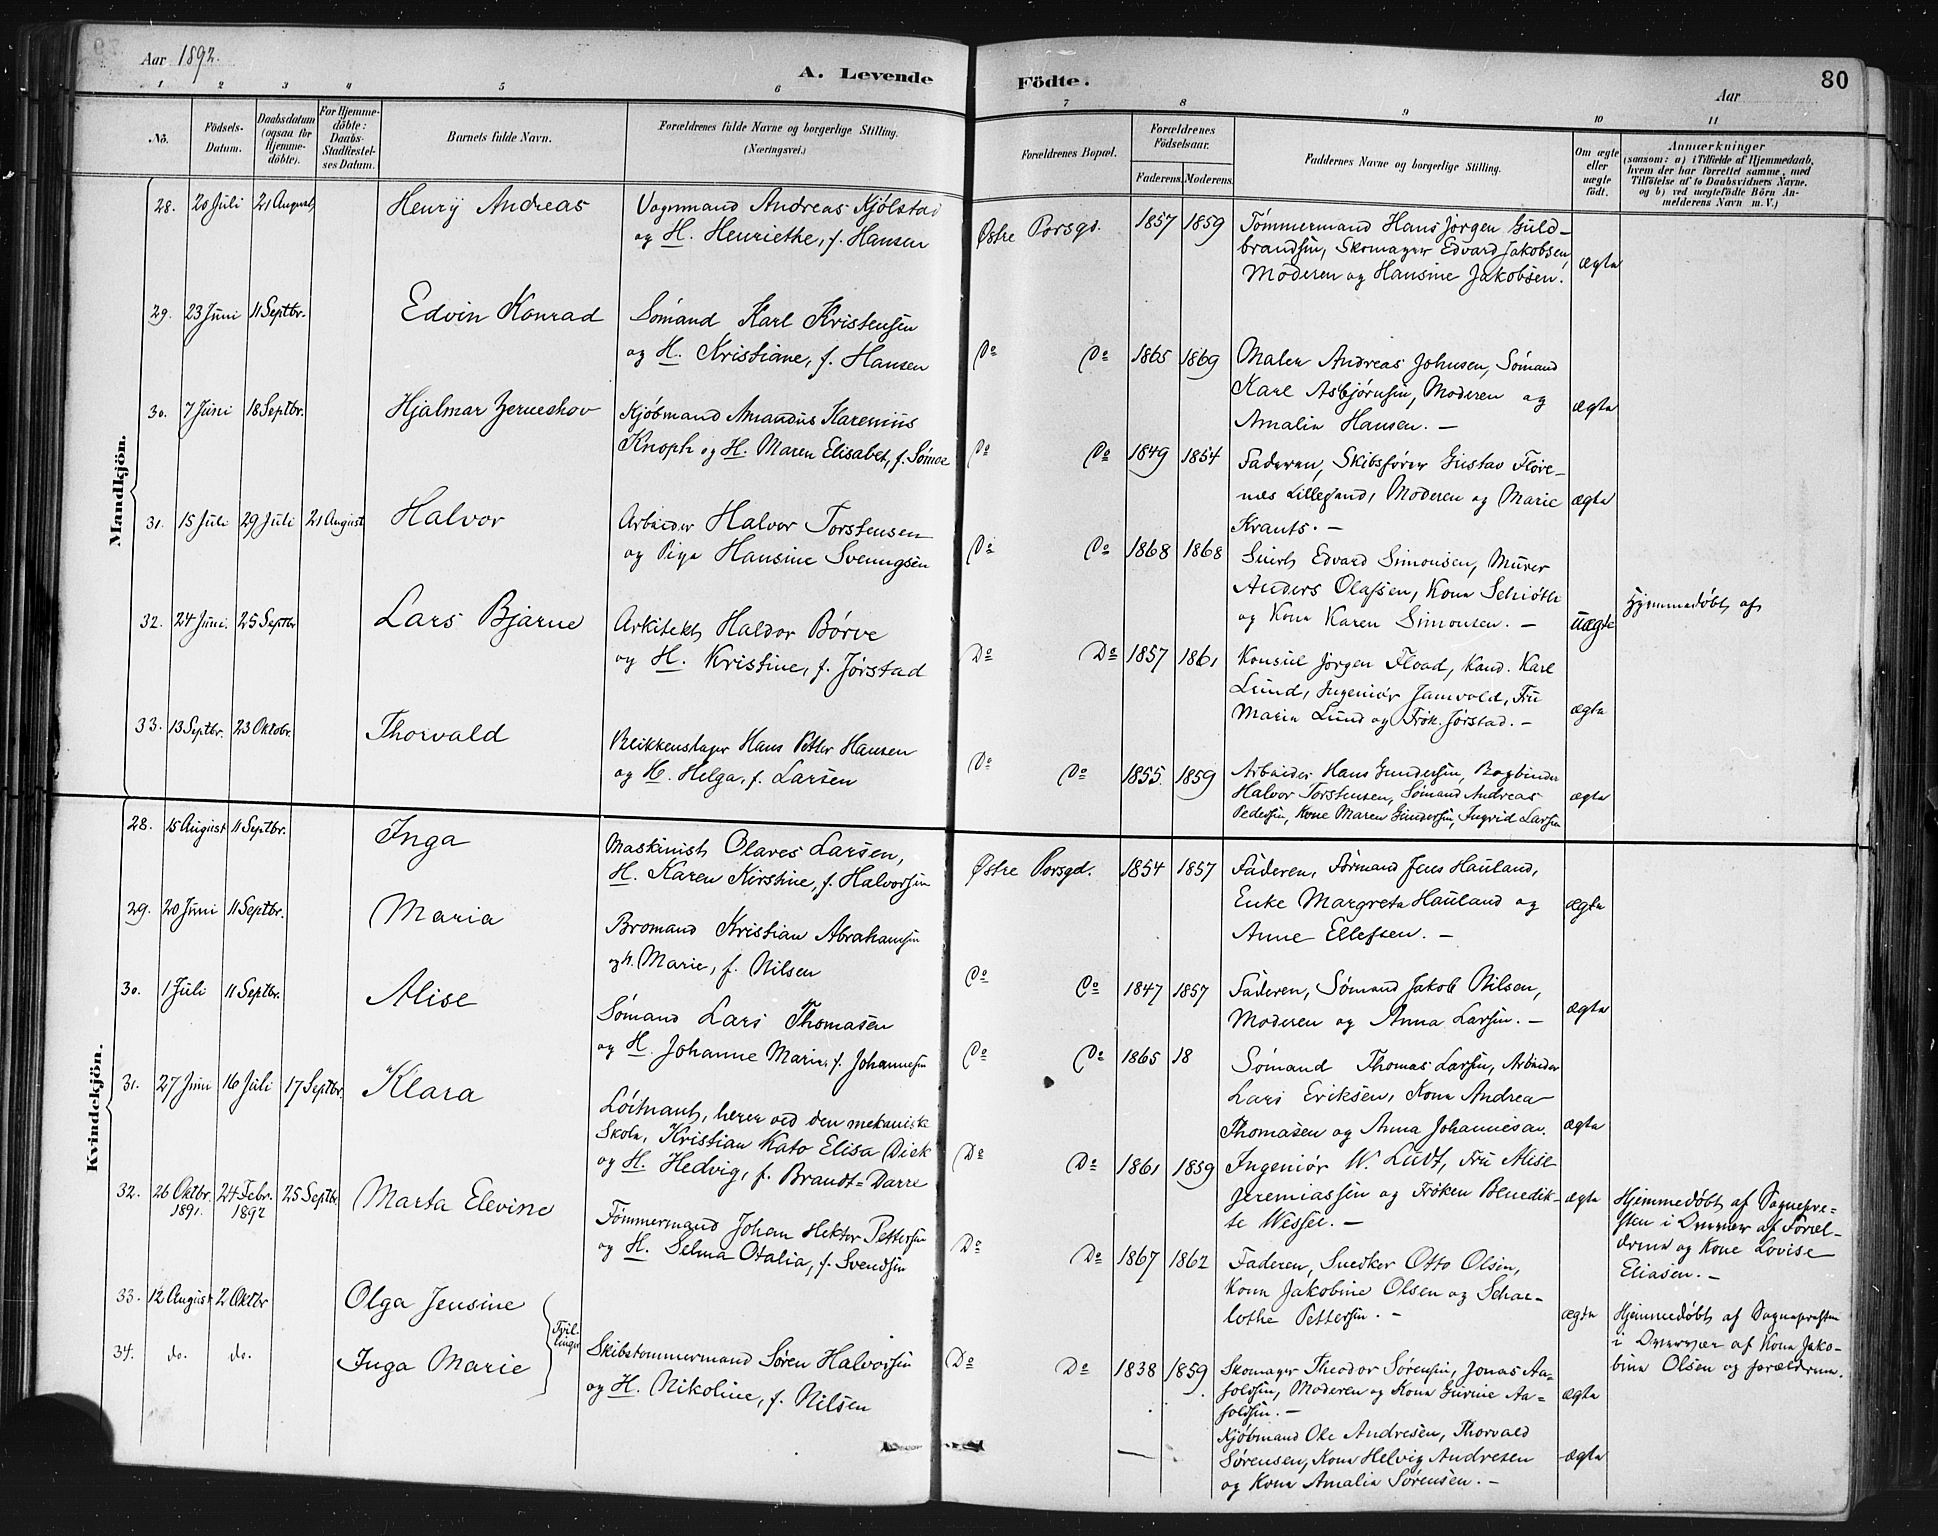 Aar 1892.
A. Levende
Födte.
Aar
80
1 2 3 4 5 6 7 8 9 10 11
No.
Födsels-Datum.
Daabsdatum (ogsaa for Hjemme-döbte).
For Hjemme-döbte: Daabs-Stadfæstel-ses Datum.
Barnets fulde Navn.
Forældrenes fulde Navne og borgerlige Stilling. (Næringsvei.)
Forældrenes Bopæl.
Forældrenes Födselsaar.
Faderens. Moderens.
Faddernes Navne og borgerlige Stilling.
Om ægte eller uægte födt.
Anmærkninger
(saasom: a) i Tilfælde af Hjemmedaab,
hvem der har forrettet samme, med
Tilföielse af to Daabsvidners Navne.
og b) ved uægtefödte Börn An-
melderens Navn m. V.)
Mandkjön.
28. 20 Juli 21 August Henry Andreas
Vognmand Andreas Kjølstad
og H. Henriethe, f. Hansen
Østre Porsgd. 1857 1859
Tømmermand Hans Jørgen Guld-
brandsen, Skomager Edvard Jakobsen,
Moderen og Hansine Jakobsen.
ægte
29. 23 Juni 11 Septbr. Edvin Konrad
Sømand Karl Kristensen
og H. Kristiane, f. Hansen
Do Do 1865 1869
Maler Andreas Johnsen, Sømand
Karl Asbjørnsen, Moderen og
Amalie Hansen. –
ægte
30. 7 Juni 18 Septbr. Hjalmar Jerneskov
Kjøbmand Amandus Karenius
Knoph og H. Maren Elisabet, f. Sømoe
Do Do 1849 1854
Faderen, Skibsfører Gustav Flore-
næs Lillesand, Moderen og Marie
Krants. –
ægte
31. 15 Juli 29 Juli 21 August Halvor
Arbeider Halvor Torstensen
og Pige Hansine Svenngsen
Do Do 1868 1868
Smed Edvard Simonsen, Murer
Anders Olafsen, Kone Schiøth
og Kone Karen Simonsen. –
uægte
Hjemmedøbt af
32. 24 Juni. 25 Septbr Lars Bjarne
Arkitekt Haldor Børve
og H. Kristine, f. Jørstad
Do Do 1857 1861
Konsul Jørgen Flood, Kand. Karl
Lund, Ingeniør Jamvold, Fru
Marie Lund og Frøk. Jørstad. –
ægte
33. 13 Septbr. 23 Oktobr. Thorvald
Blikkenslager Hans Petter Hansen
og H. Helga, f. Larsen
Do Do 1855. 1859
Arbeider Hans Gundersen, Bogbinder
Halvor Torstensen, Sømand Andreas
Pedersen, Kone Maren Gundersen, Ingrid Larsen
ægte
Kvindekjön.
28. 15 August 11 Septbr. Inga
Maskinist Olaves Larsen,
H. Karen Kirstine, f. Halvorsen
Østre Porsgd. 1854 1857
Faderen, Formand Jens Hauland,
Enke Margrete Hauland og
Anne Ellefsen. –
ægte
29. 20 Juni 11 Septbr. Maria
Bromand Kristian Abrahamsen
og H. Marie, f. Nilsen
Do Do 1847 1857
Faderen, Sømand Jakob Nilsen,
Moderen og Anna Larsen. –
ægte
30. 1 Juli 11 Septbr. Alise
Sømand Lars Thomasen
og H. Johanne Marie, f. Johannesen
Do Do 1865 18
Sømand Thomas Larsen, Arbeider
Lars Eriksen, Kone Andrea
Thomasen og Anna Johannesen.
ægte
31. 27 Juni 16 Juli 17 Septbr. Klara
Løitnant, lærer ved den mekaniske
Skole, Kristian Kato Elisa Dick
og H. Hedvig, f. Brandt-Darre
Do Do 1861 1859
Ingeniør W. Ludt, Fru Alise
Jeremiassen og Frøken Benedik-
te Wessel. –
ægte
Hjemmedøbt af Sognepre-
sten i Overvær af Foræl-
drene og Kone Lovise
Eliasen. –
32. 26 Oktbr. 1891. 24 Febr. 1892 25 Septbr. Marta Elevine
Tømmermand Johan Hektor Pettersen
og H. Selma Otalia, f. Svendsen
Do Do 1867 1862
Faderen, Snedker Otto Olsen,
Kone Jakobine Olsen og Schar-
lothe Pettersen. –
ægte
Hjemmedøbt af Sognepresten
i Overvær af Kone Jako-
bine Olsen og forældrene.
33. 12 August 2 Oktbr Olga Jensine
34. do. do. Inga Marie
Tvil-
linger
Skibstømmermand Søren Halvorsen
og H. Nikoline, f. Nilsen
Do Do 1838 1859
Skomager Theodor Sørensen, Jonas Aa-
solsen, Moderen og Kone Gurine Aa-
solsen. –
ægte
Kjøbmand Ole Andresen, Thorvald
Sørensen, Kone Helvig Andresen
og Kone Amalie Sørensen. –
ægte